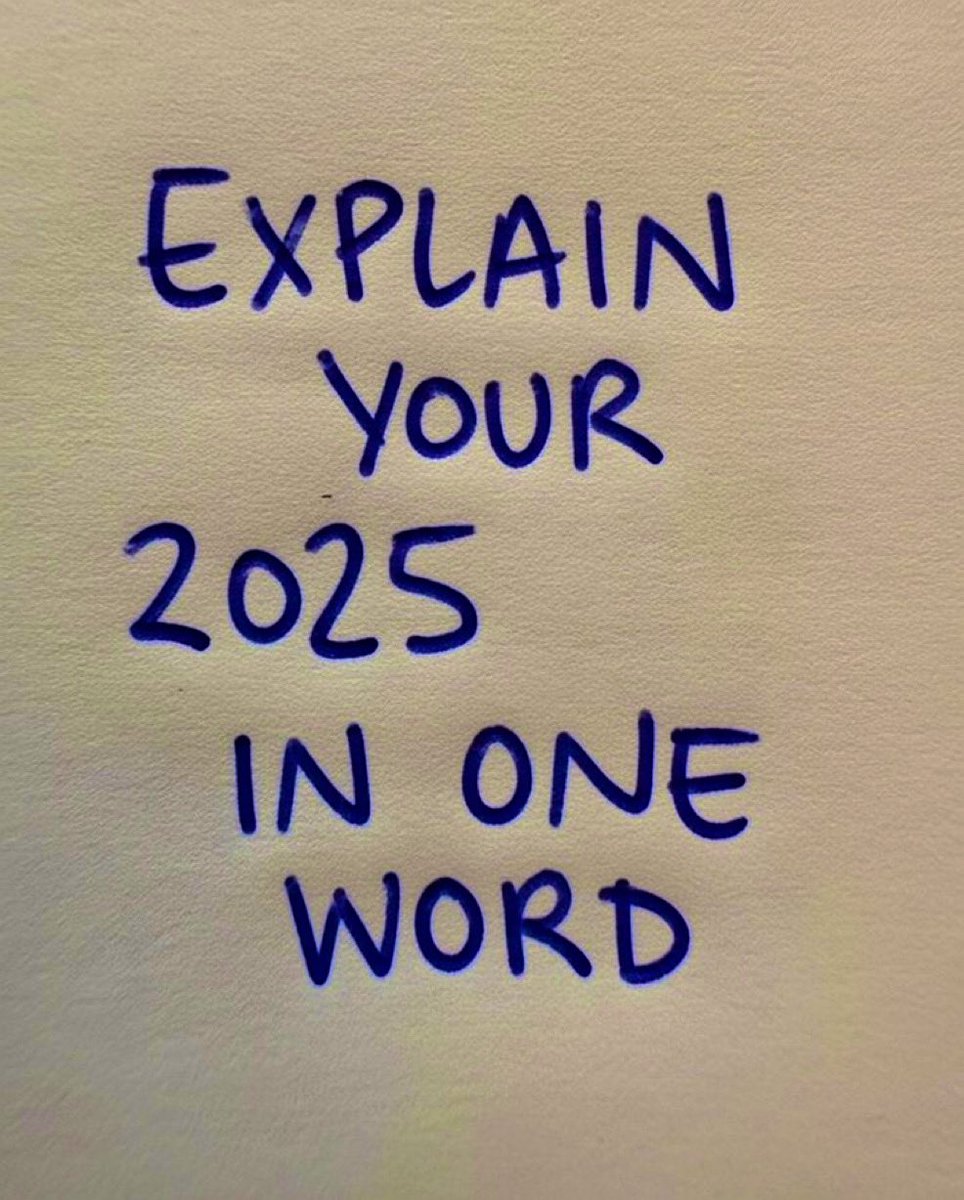 EXPLAIN
YOUR
2025
IN ONE
WORD